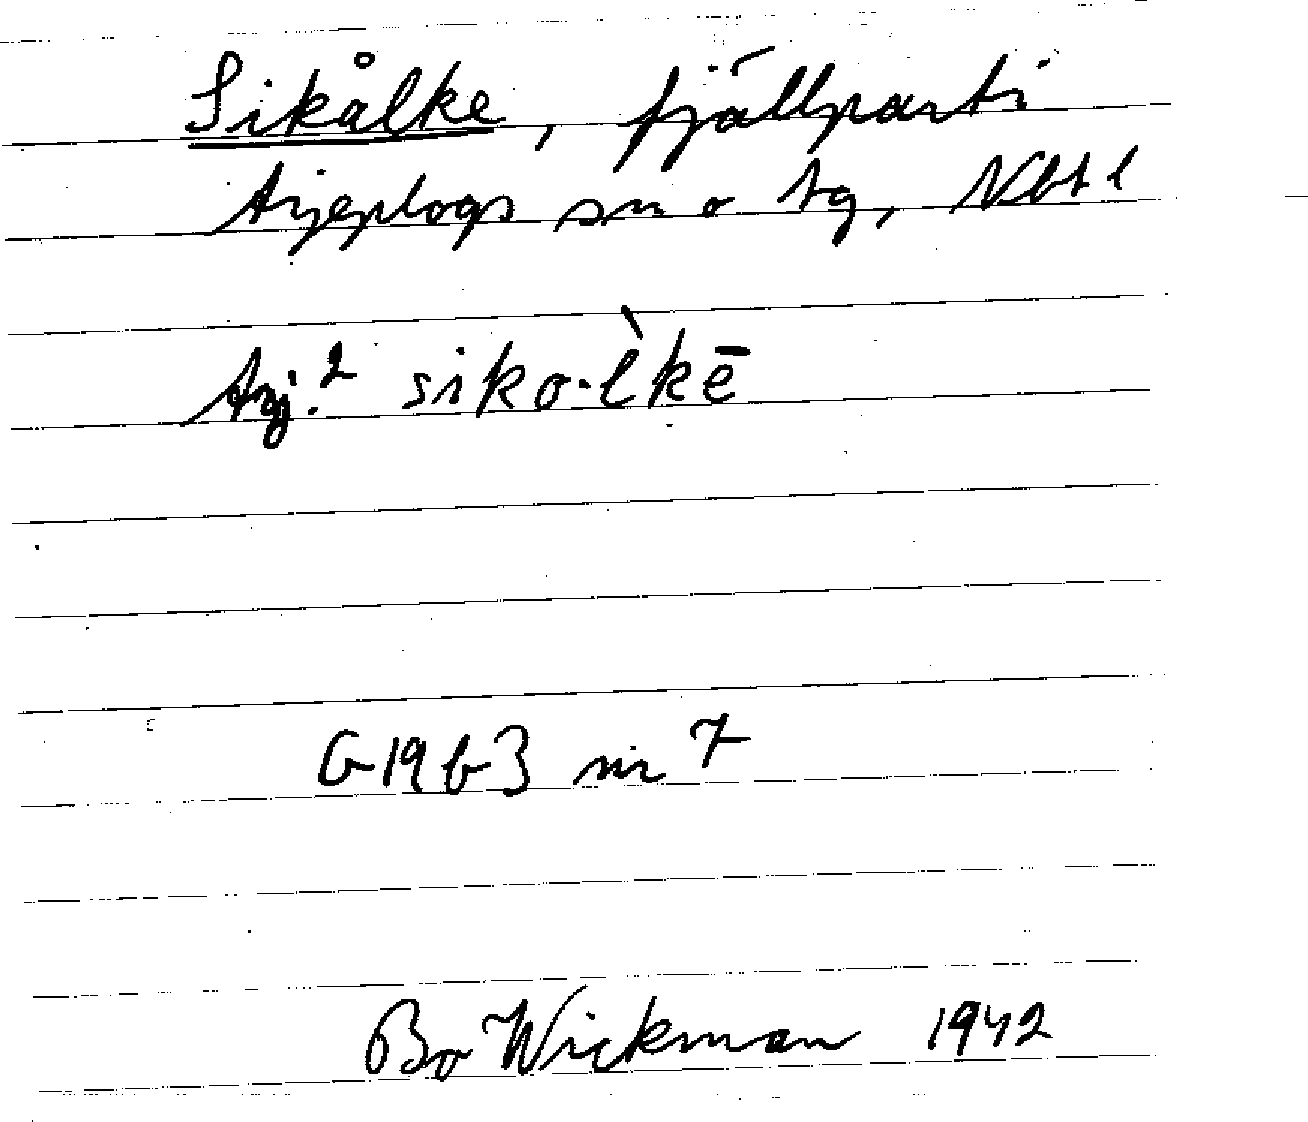 Sikålke, fjällparti
Arjeplogs sn o tg, Nbt l
Arj.² siko·l̀kē
G19b3 nr 7
Bo Wickman 1942